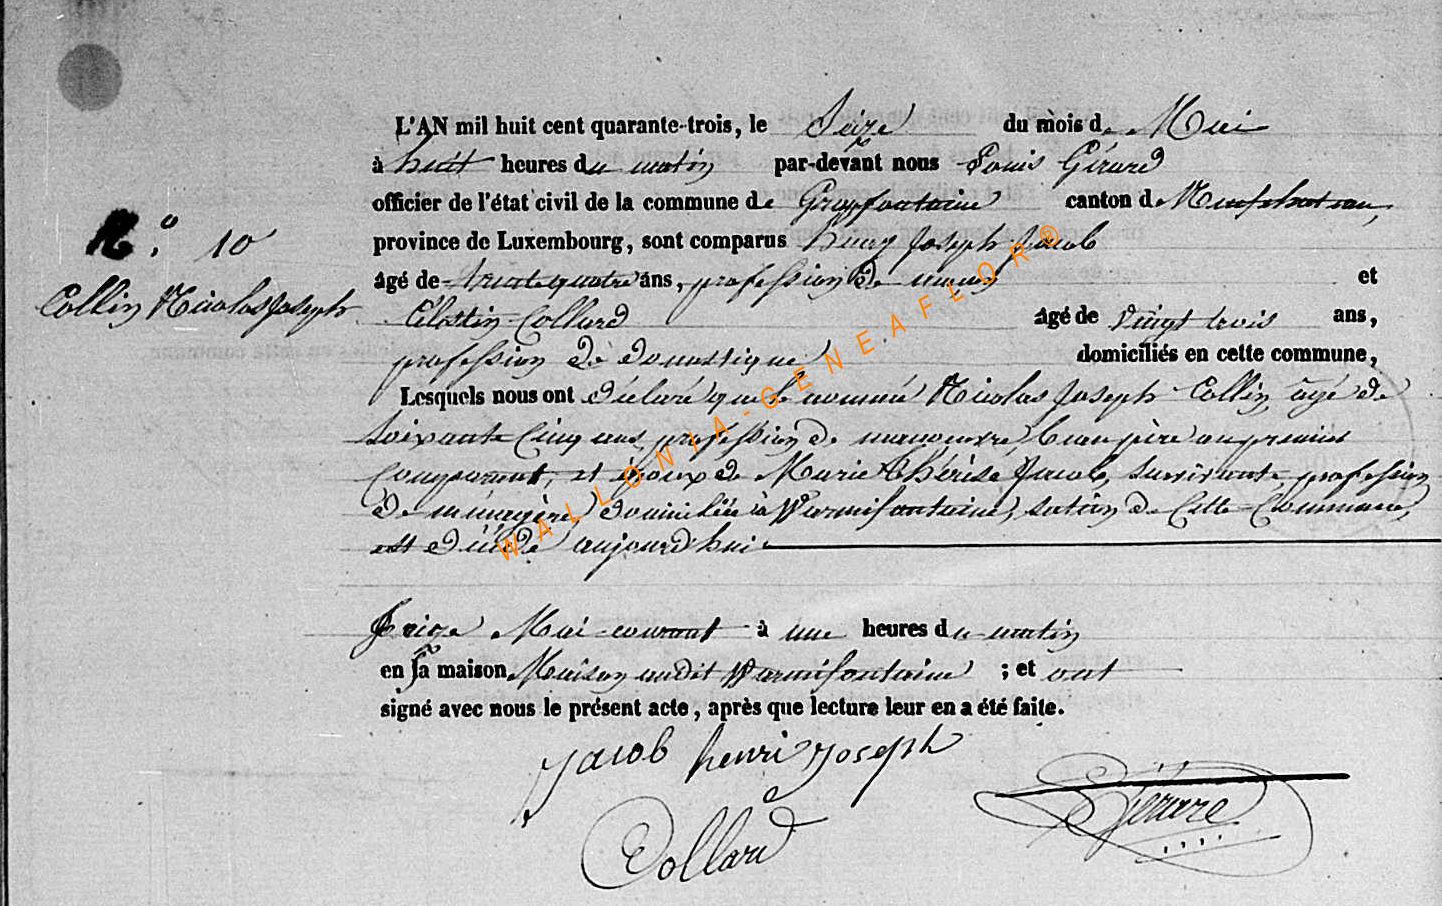 L'AN mil huit cent quarante-trois, le Seize du mois de Mai
à huit heures du matin par-devant nous Louis Gérard
officier de l'état civil de la commune de Grapfontaine canton de Neufchateau,
province de Luxembourg, sont comparus henry Joseph Jacob
N.° 10
âgé de trente quatre ans, profession de et
Collin Nicolas Joseph
Célestin Collard âgé de vingt trois ans,
profession de domestique domiciliés en cette commune,
Lesquels nous ont déclaré que le nommé Nicolas Joseph Collin agé de
soixante cinq ans, profession de manoeuvre, beau père au premier
Comparant, et époux de Marie Thérèse Jacob, survivante, profession
de ménagère, domiciliée à Warmifontaine, section de Cette Commune,
est décédé aujourd'hui
Seize Mai courant à une heures du matin
en sa maison Maison audit Warmifontaine ; et ont
signé avec nous le présent acte, après que lecture leur en a été faite.
Jacob henri Joseph
Gérard
Collard
WALLONIA-GENEAFLOR®